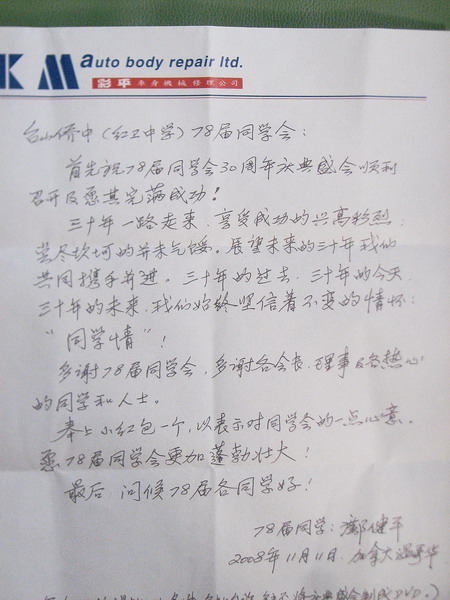 KM auto body repair ltd.
彩平 车身機械修理公司
台山侨中(红卫中学)78届同学会:
首先祝78届同学会30周年庆典盛会顺利
召开及愿其完满成功!
三十年一路走来,享受成功的兴高彩烈,
尝尽坎坷的并未气馁。展望未来的三十年我们
共同携手并进。三十年的过去,三十年的今天,
三十年的未来,我们始终坚信着不变的情怀:
“同学情”!
多谢78届同学会,多谢各会长、理事及各热心
的同学和人士。
奉上小红包一个,以表示对同学会的一点心意。
愿78届同学会更加蓬勃壮大!
最后,问候78届各同学好!
78届同学:邝健平
2008年11月11日.加拿大温哥华
DVD。)